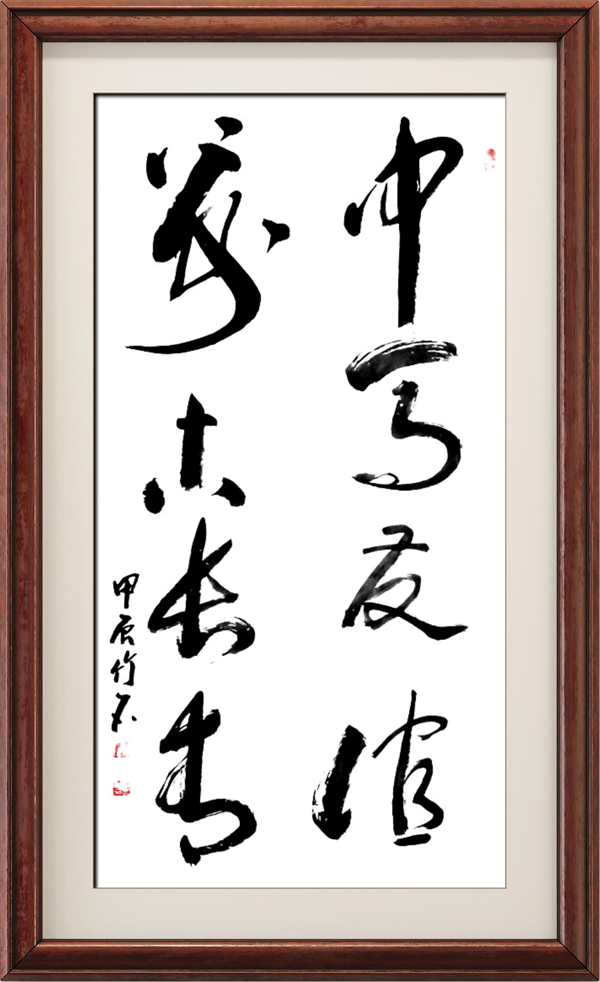 中马友谊
萬古长青
甲辰竹